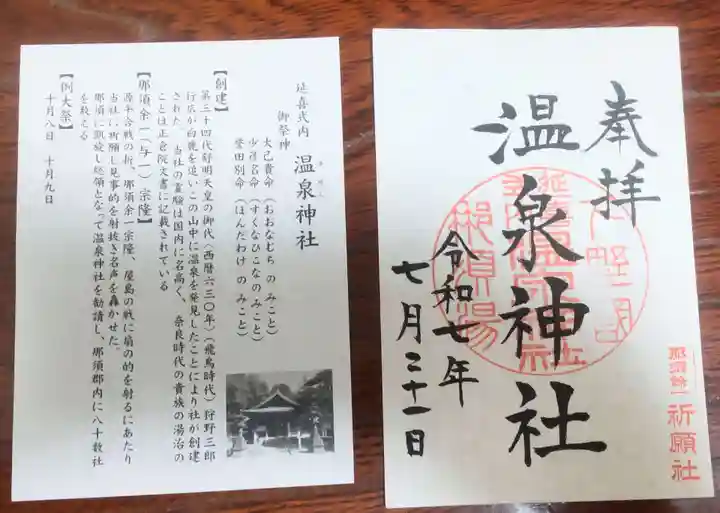 延喜式内 温泉神社
御祭神
大己貴命（おおなむち のみこと）
少彦名命（すくなひこなのみこと）
誉田別命（ほんだわけ のみこと）
【創建】
第三十四代舒明天皇の御代（西暦六三〇年）（飛鳥時代）狩野三郎
行広が白鹿を追いこの山中に温泉を発見したことにより社が創建
された。当社の霊験は国内に名高く、奈良時代の貴族の湯治の
ことは正倉院文書に記載されている
【那須余一（与一）宗隆】
源平合戦の折、那須余一宗隆、屋島の戦に扇の的を射るにあたり
当社に祈願し見事的を射抜き名声を轟かせた。
那須に凱旋し総領となって温泉神社を勧請し、那須郡内に八十数社
を数える
【例大祭】
十月八日 十月九日
奉拝
温泉神社
令和七年
七月三十一日
下野国
延喜
式内
温泉神社
那須湯
那須余一
祈願社